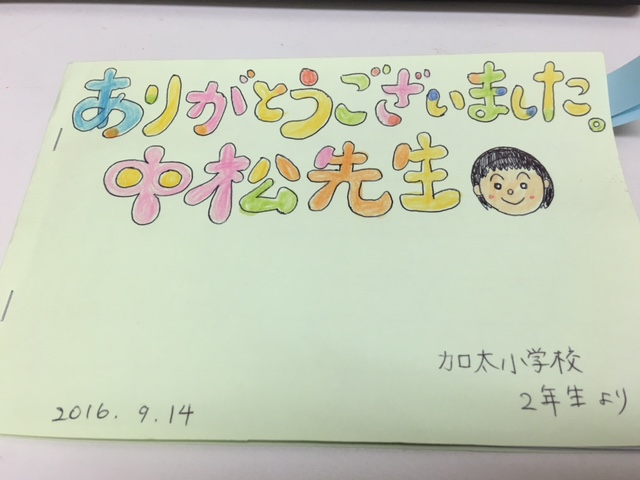 ありがとうございました。
中松先生
加太小学校
2年生より
2016.9.14